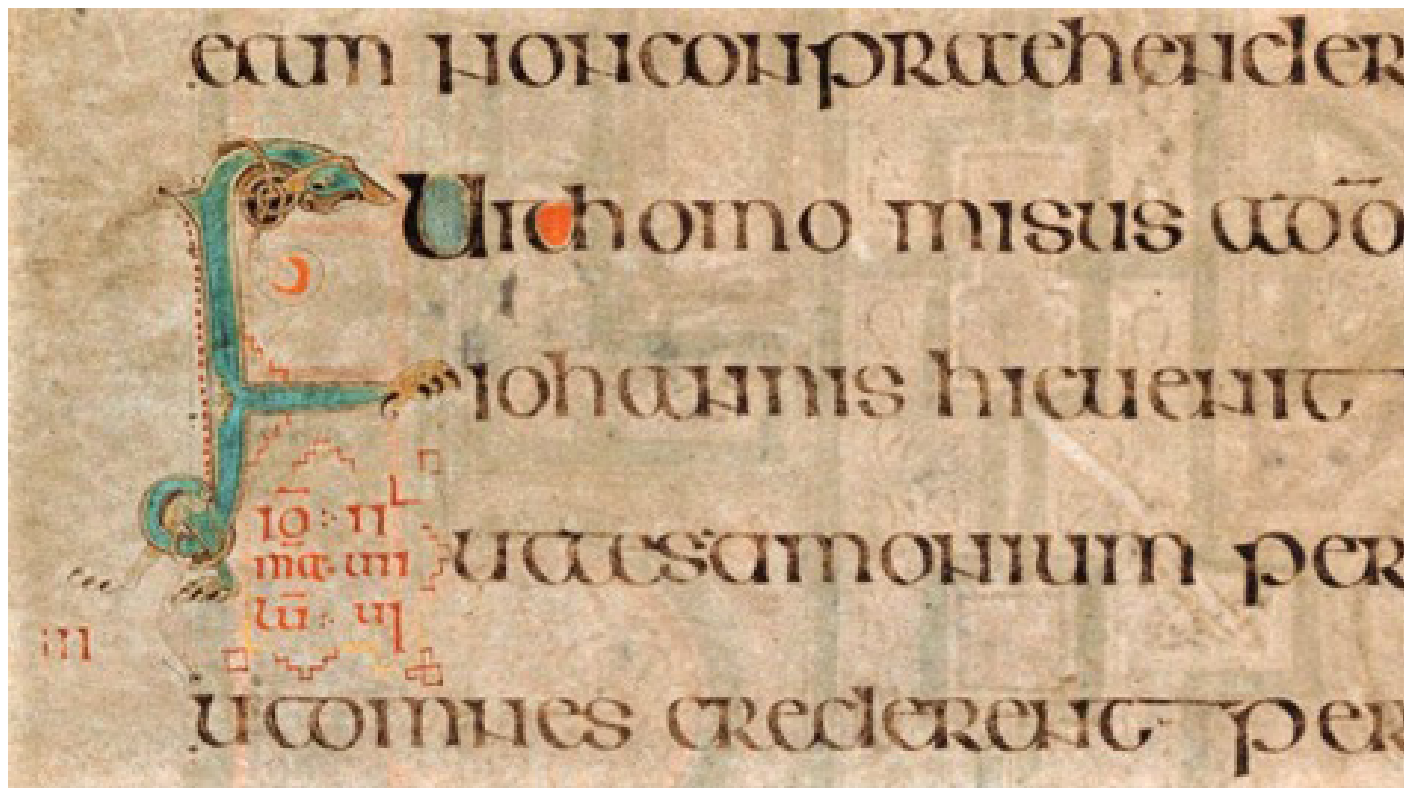 eam non conpraehender
Fuit homo misus a dō
iohannis hic uenit
iō : ii
mā · uii
ut testimonium per
lū : ui
iii
ut omnes crederent per